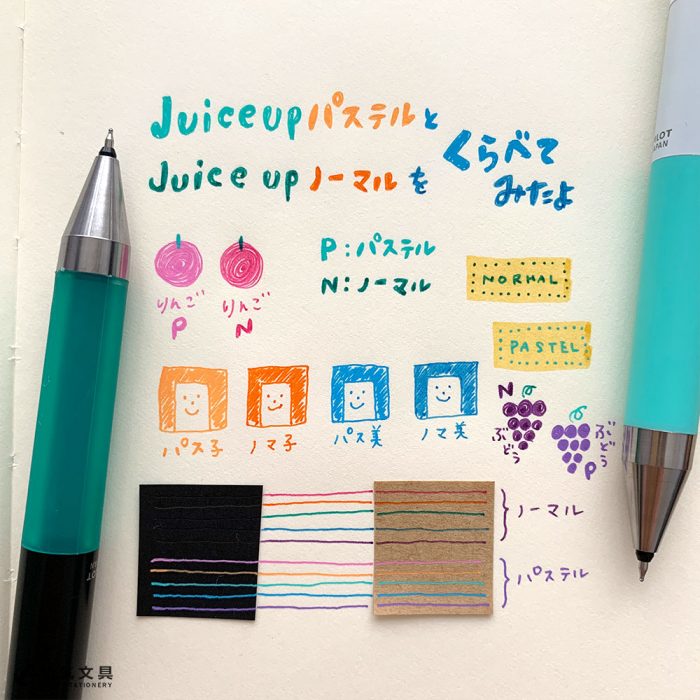 Juice up パステルと
Juice up ノーマルを
くらべて
みたよ
P:パステル
N:ノーマル
りんご
P
りんご
N
NORMAL
PASTEL
パス子
ノマ子
パス美
ノマ美
N
ぶどう
ぶどう
P
ノーマル
パステル
PILOT
JAPAN
文具
STATIONERY